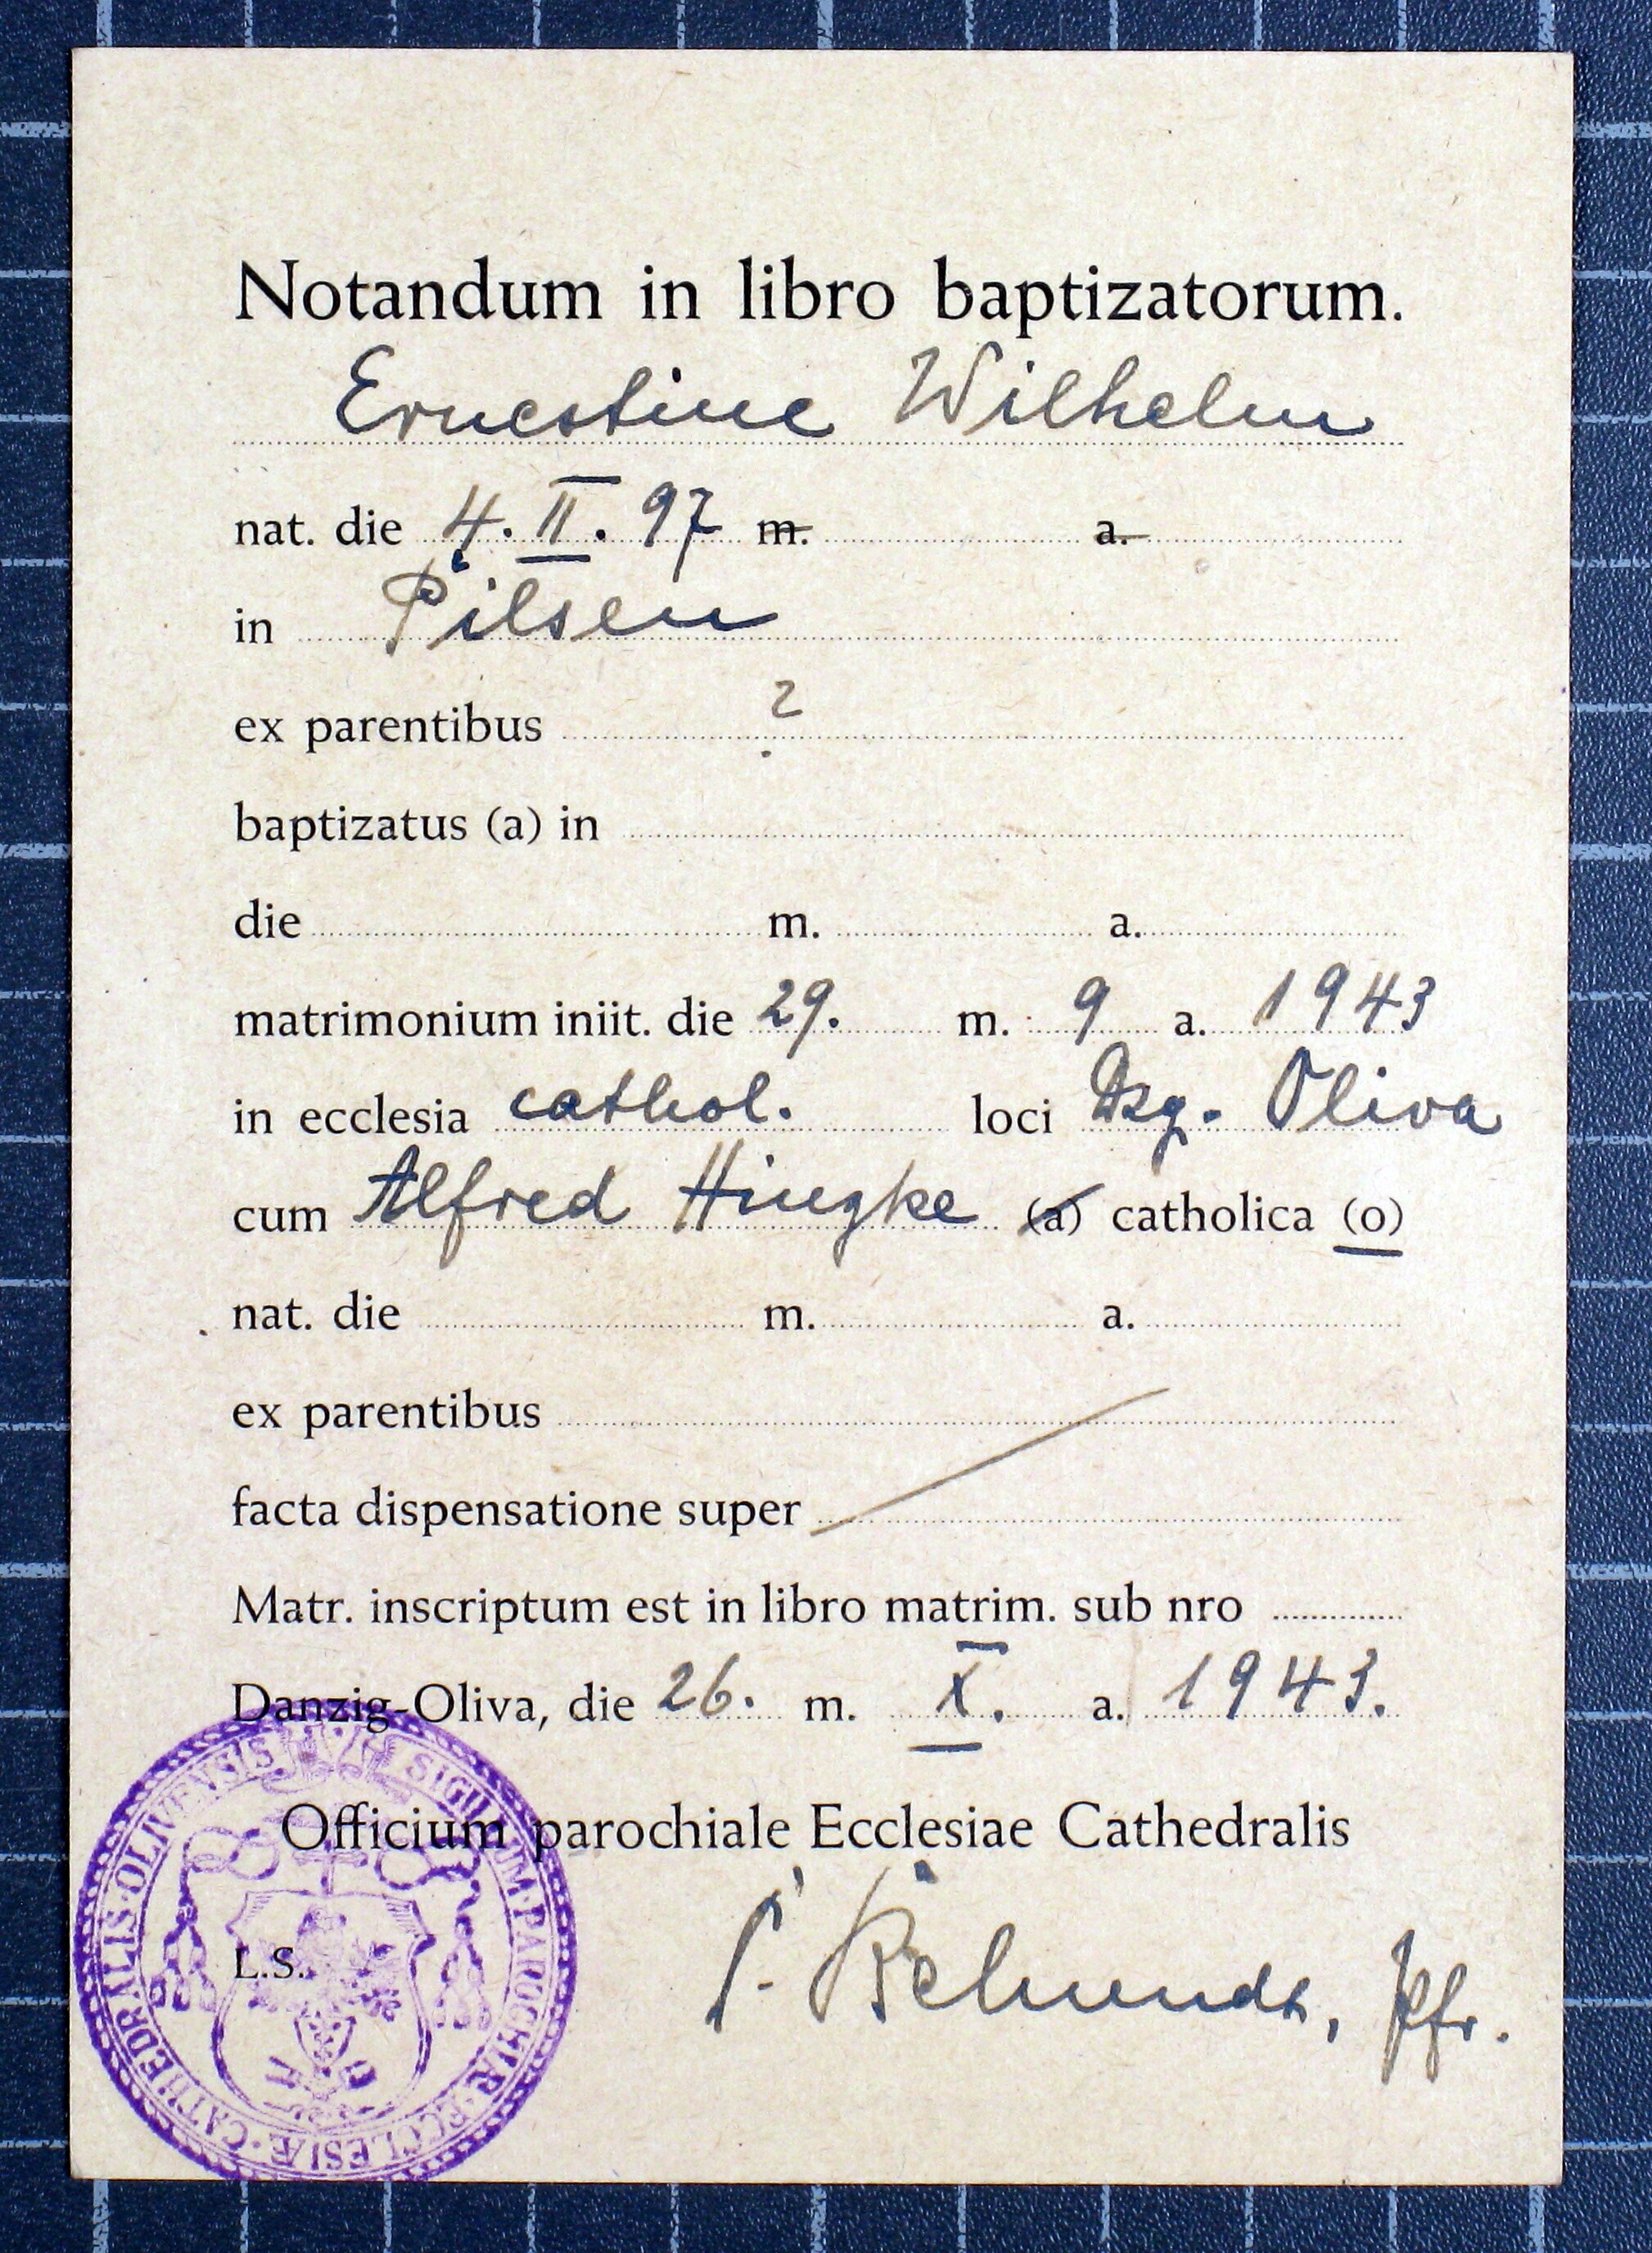 Notandum in libro baptizatorum.
Ernestine Wilhelm
nat. die 4. II. 97 m. a.
in Pilsen
ex parentibus ?
baptizatus (a) in
die m. a.
matrimonium iniit. die 29. m. 9 a. 1943
in ecclesia cathol. loci Dzg. Oliva
cum Alfred Hingke (a) catholica (o)
nat. die m. a.
ex parentibus
facta dispensatione super
Matr. inscriptum est in libro matrim. sub nro
Danzig-Oliva, die 26. m. X. a. 1943.
Officium parochiale Ecclesiae Cathedralis
L.S.
Behrendt, Pfr.
SIGILLUM·PAROCHIÆ·ECCLESIÆ·CATHEDRALIS·OLIVENSIS